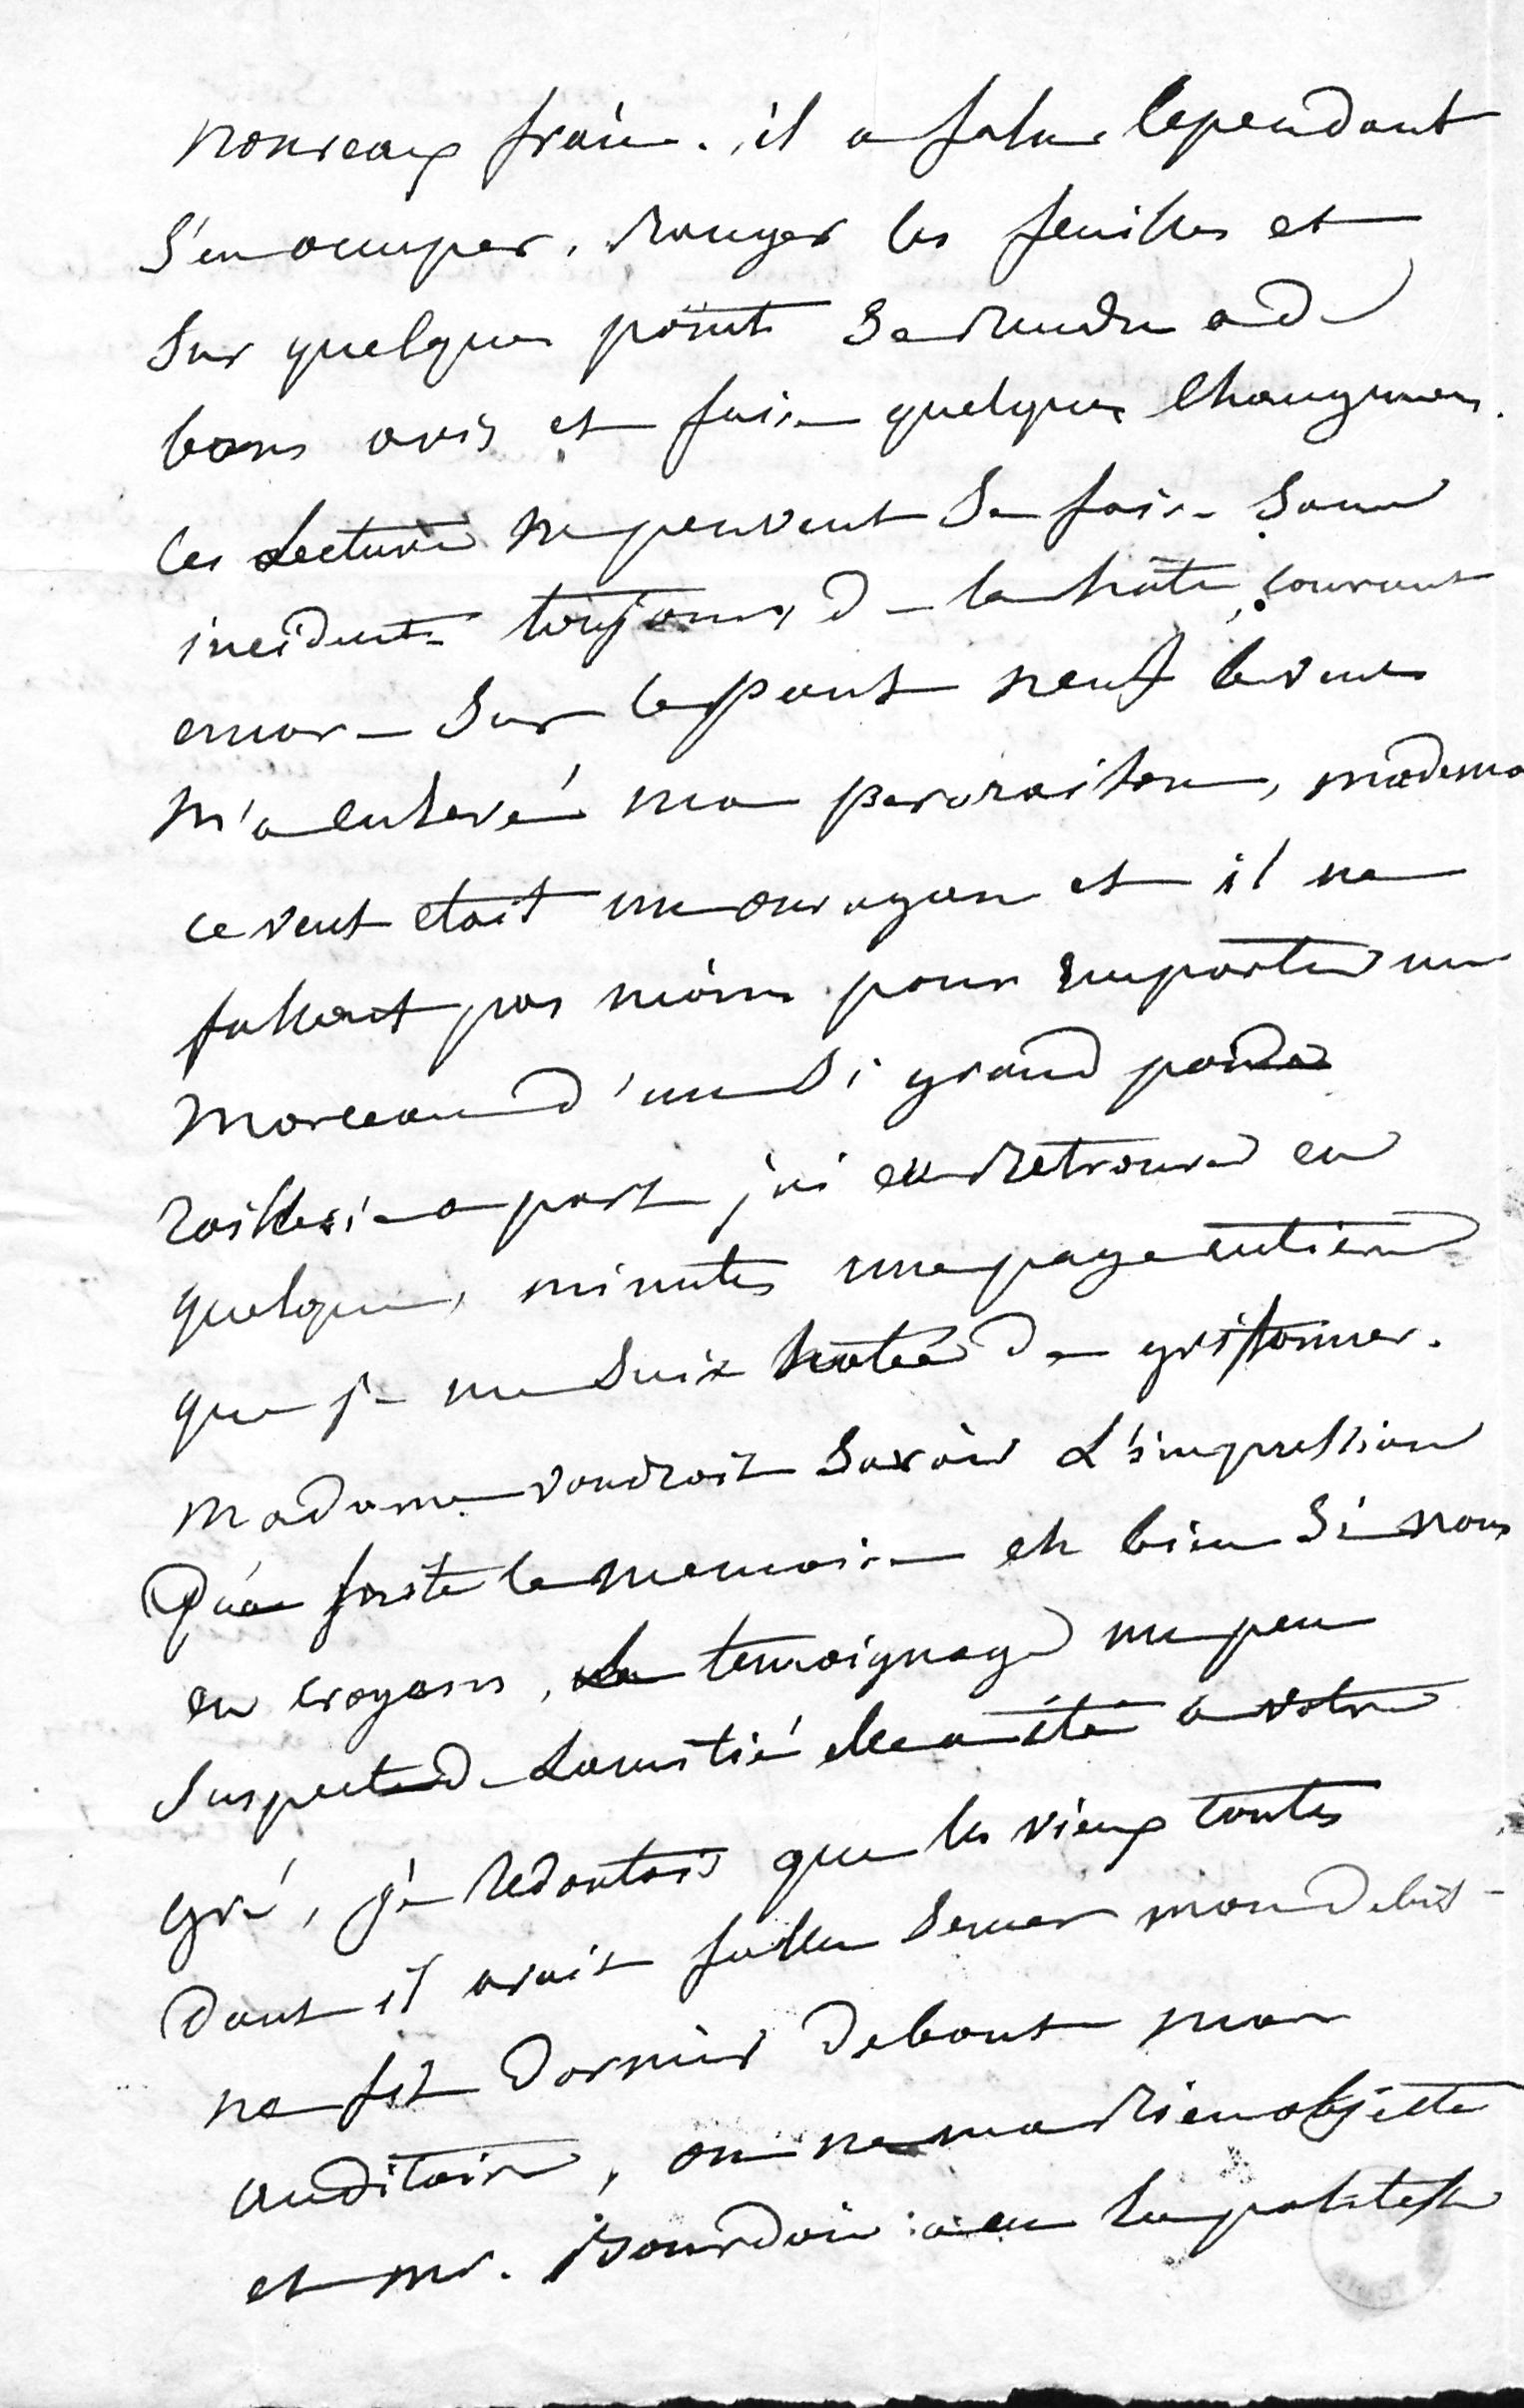 nouveaux frais. il a falu cependant
s'en occuper. ranger les feuilles et
sur quelques points se rendre a de
bons avis et faire quelques changemens.
ces Lectures ne peuvent se faire sans
incidents toujours de la hate, courant
encore sur le pont neuf le vent
m'a enlevé ma peroraison, mademo
ce vent etait un ouragan et il ne
fallait pas moins pour emporter un
morceau d'un si grand poids
raillerie a part j'ai retrouvé en
quelques minutes une page entiere
que je me suis hatée de grifonner.
Madame voudroit savoir L'impression
Qu'a faite le memoire eh bien si nous
en croyons, Le temoignage un peu
suspect de L'amitié elle a été a votre
gré, je redoutois que les vieux contes
dont il avait fallu semer mon debut
ne fit dormir debout mon
auditoire, on ne m'a rien objecté
et mr. Bourdois a eu la politesse